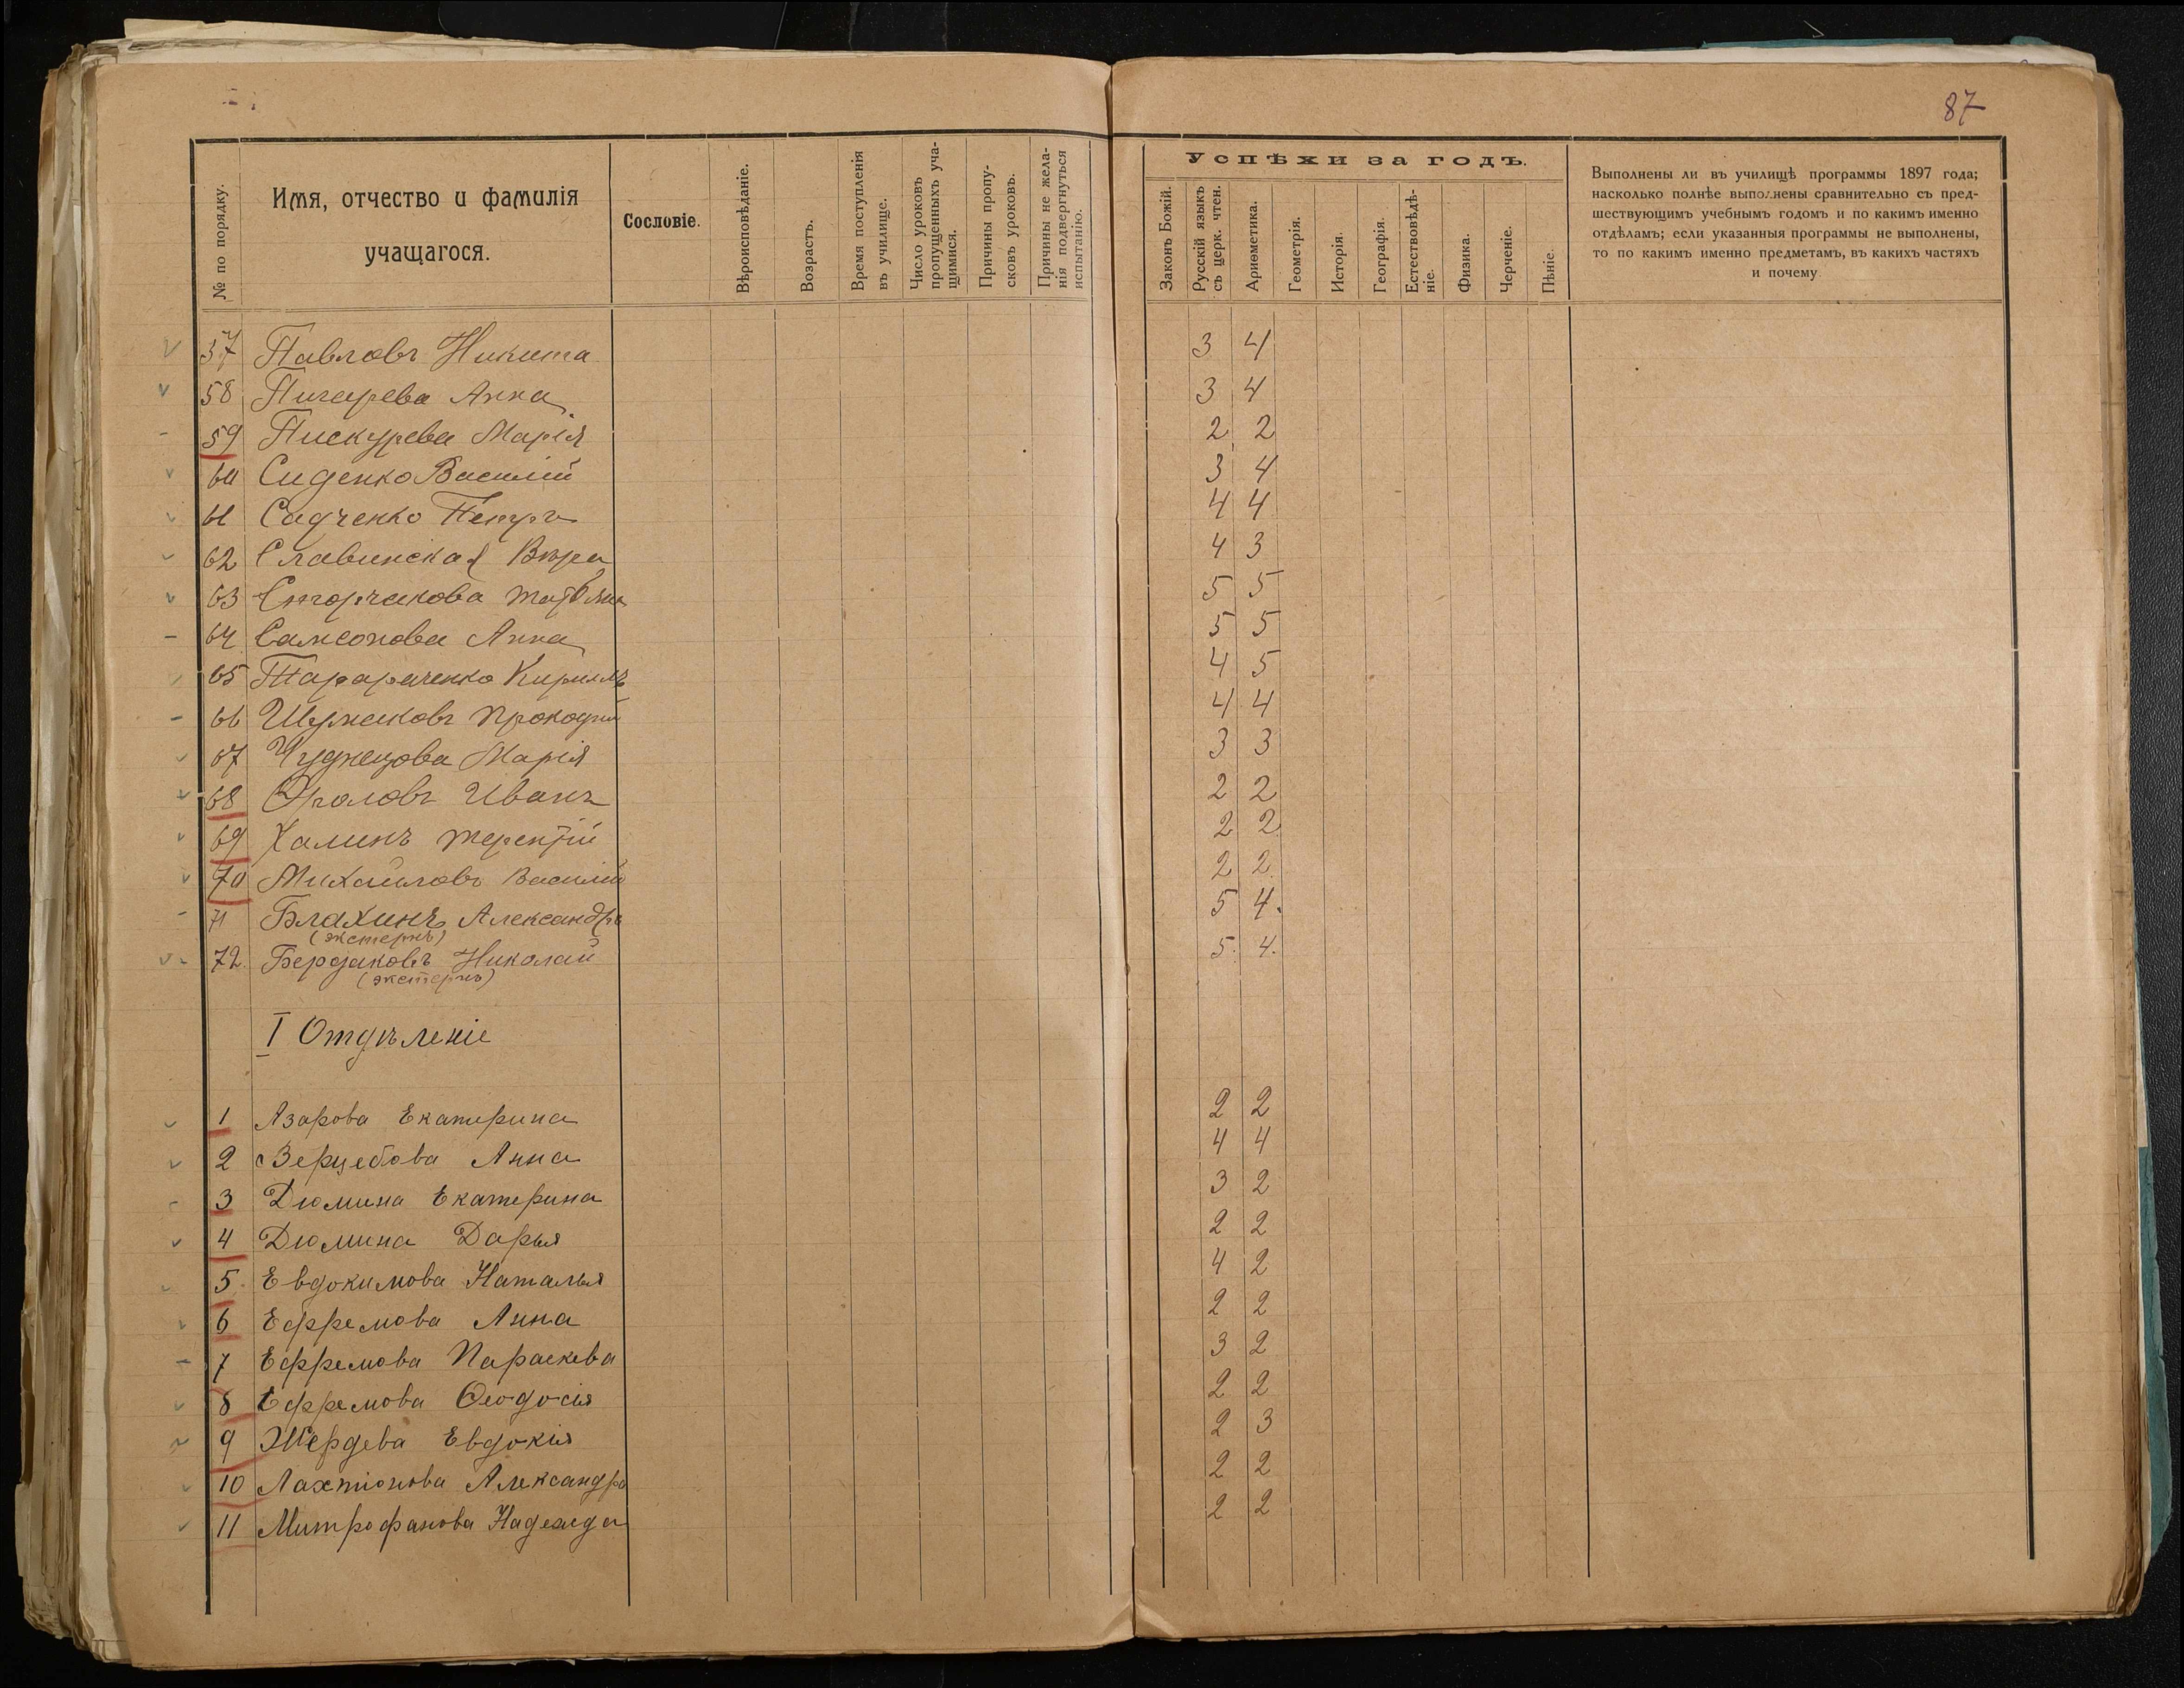 87
№ по порядку.
Имя, отчество и фамилія
учащагося.
Сословіе.
Вѣроисповѣданіе.
Возрастъ.
Время поступленія
въ училище.
Число уроковъ
пропущенныхъ уча-
щимися.
Причины пропу-
сковъ уроковъ.
Причины не жела-
нія подвергнуться
испытанію.
Успѣхи за годъ.
Законъ Божій.
Русскій языкъ
съ церк. чтен.
Ариѳметика.
Геометрія.
Исторія.
Географія.
Естествовѣдѣ-
ніе.
Физика.
Черченіе.
Пѣніе.
Выполнены ли въ училищѣ программы 1897 года;
насколько полнѣе выполнены сравнительно съ пред-
шествующимъ учебнымъ годомъ и по какимъ именно
отдѣламъ; если указанныя программы не выполнены,
то по какимъ именно предметамъ, въ какихъ частяхъ
и почему
57 Павловъ Никита 3 4
58 Пигарева Анна 3 4
59 Пискурева Марія 2 2
60 Сиденко Василій 3 4
61 Садченко Петръ 4 4
62 Славинская Вѣра 4 3
63 Сторчакова 5 5
64 Самсонова Анна 5 5
65 Тарараченко Кириллъ 4 5
66 Прокофій 4 4
67 Чуднецова Марія 3 3
68 Фроловъ Иванъ 2 2
69 Халинъ Терентій 2 2
70 Михайловъ Василій 2 2
71 Блахинъ Александръ 5 4.
(экстернъ)
72 Бердаковъ Николай 5. 4.
(экстернъ)
I Отдѣленіе
1 Азарова Екатерина 2 2
2 Верцебова Анна 4 4
3 Дюмина Екатерина 3 2
4 Дюмина Дарья 2 2
5. Евдокимова Наталья 4 2
6 Ефремова Анна 2 2
7 Ефремова Параскева 3 2
8 Ефремова Ѳеодосія 2 2
9 Жердева Евдокія 2 3
10 Лахтіонова Александра 2 2
11 Митрофанова Надежда 2 2